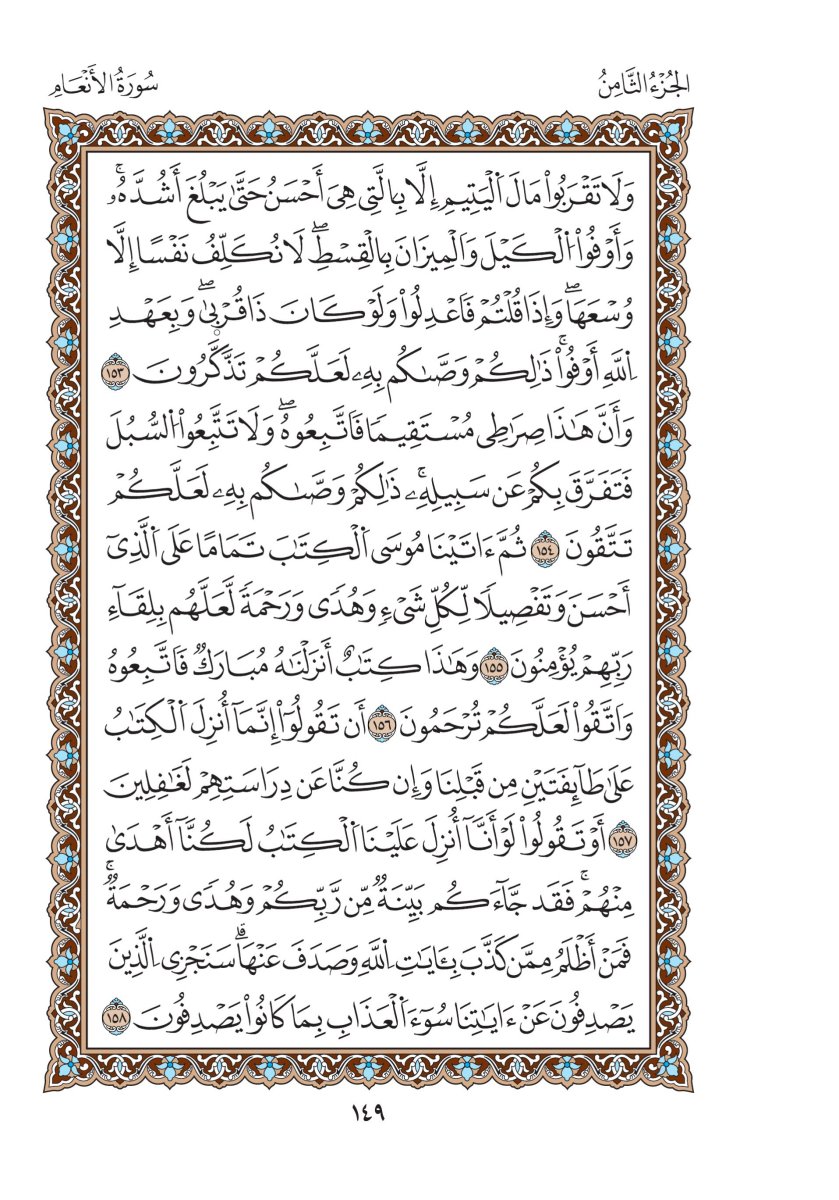 الجُزْءُ الثَّامِنُ
سُورَةُ الأَنْعَامِ
وَلَا تَقْرَبُوا۟ مَالَ اَلْيَتِيمِ إِلَّا بِالَّتِى هِىَ أَحْسَنُ حَتَّىٰ يَبْلُغَ أَشُدَّهُۥۚ
وَأَوْفُوا۟ اُلْكَيْلَ وَالْمِيزَانَ بِالْقِسْطِۖ لَا نُكَلِّفُ نَفْسًا إِلَّا
وُسْعَهَاۖ وَإِذَا قُلْتُمْ فَاعْدِلُوا۟ وَلَوْ كَانَ ذَا قُرْبىٰۖ وَبِعَهْدِ
اِللَّهِ أَوْفُوا۟ۚ ذَٰلِكُمْ وَصَّىٰكُم بِهِۦ لَعَلَّكُمْ تَذَّكَّرُونَ ١٥٣
وَأَنَّ هَٰذَا صِرَٰطِى مُسْتَقِيمًا فَاتَّبِعُوهُۖ وَلَا تَتَّبِعُوا۟ اُلسُّبُلَ
فَتَفَرَّقَ بِكُمْ عَن سَبِيلِهِۦۚ ذَٰلِكُمْ وَصَّىٰكُم بِهِۦ لَعَلَّكُمْ
تَتَّقُونَ ١٥٤ ثُمَّ ءَاتَيْنَا مُوسَى اَلْكِتَٰبَ تَمَامًا عَلَى اَلَّذِىٓ
أَحْسَنَ وَتَفْصِيلًا لِّكُلِّ شَىْءٍ وَهُدًى وَرَحْمَةً لَّعَلَّهُم بِلِقَآءِ
رَبِّهِمْ يُؤْمِنُونَ ١٥٥ وَهَٰذَا كِتَٰبٌ أَنزَلْنَٰهُ مُبَارَكٌ فَاتَّبِعُوهُ
وَاتَّقُوا۟ لَعَلَّكُمْ تُرْحَمُونَ ١٥٦ أَن تَقُولُوٓا۟ إِنَّمَآ أُنزِلَ اَلْكِتَٰبُ
عَلَىٰ طَآئِفَتَيْنِ مِن قَبْلِنَا وَإِن كُنَّا عَن دِرَاسَتِهِمْ لَغَٰفِلِينَ
١٥٧ أَوْ تَقُولُوا۟ لَوْ أَنَّآ أُنزِلَ عَلَيْنَا اَلْكِتَٰبُ لَكُنَّآ أَهْدَىٰ
مِنْهُمْۚ فَقَد جَّآءَكُم بَيِّنَةٌ مِّن رَّبِّكُمْ وَهُدًى وَرَحْمَةٌۚ
فَمَنْ أَظْلَمُ مِمَّن كَذَّبَ بِـَٔايَٰتِ اِللَّهِ وَصَدَفَ عَنْهَاۗ سَنَجْزِى اِلَّذِينَ
يَصْدِفُونَ عَنْ ءَايَٰتِنَا سُوٓءَ اَلْعَذَابِ بِمَا كَانُوا۟ يَصْدِفُونَ ١٥٨
١٤٩